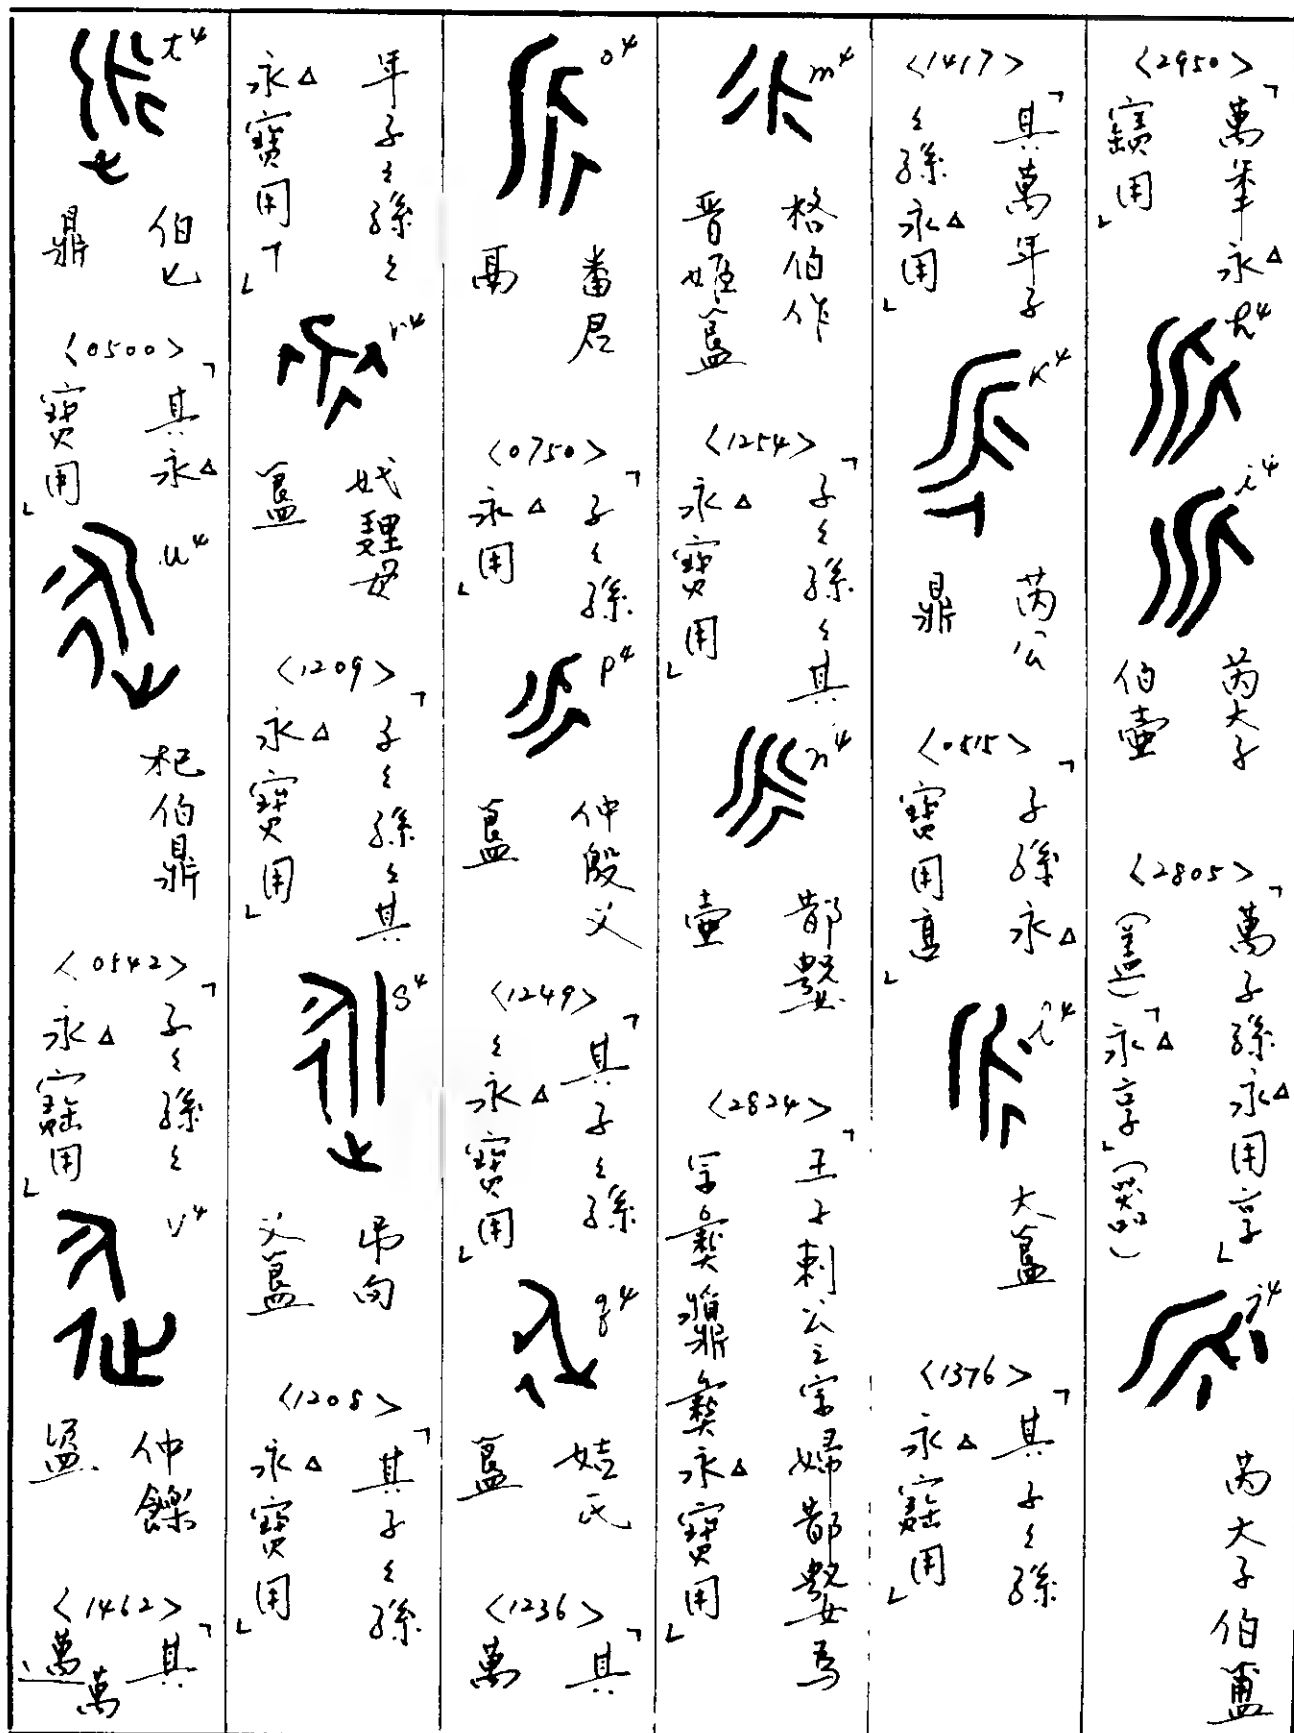 <2950>
「萬年永△
寶用」
h⁴
i⁴
芮大子
伯壺
<2805>
「萬子孫永△用享」
(蓋)「永△享」(器)
j⁴
芮大子伯簠
<1417>
「其萬年子
〻孫永△用」
k⁴
芮公
鼎
<0515>
「子孫永△
寶用享」
l⁴
大簋
<1376>
「其子〻孫
永△寶用」
m⁴
格伯作
晉姬簋
<1254>
「子〻孫〻其
永△寶用」
n⁴
壺
<2824>
「王子剌公之宗婦鄁嫛為
宗彝鼎彝永△寶用」
o⁴
番君
鬲
<0750>
「子〻孫
永△用」
p⁴
仲殷父
簋
<1249>
「其子〻孫
〻永△寶用」
q⁴
姞氏
簋
<1236>
「其
萬
年子〻孫〻
永△寶用」
r⁴
簋
<1209>
「子〻孫〻其
永△寶用」
s⁴
弔向
父簋
<1208>
「其子〻孫
永△寶用」
t⁴
伯
鼎
<0500>
「其永△
寶用」
u⁴
杞伯鼎
<0542>
「子〻孫〻
永△寶用」
v⁴
仲
盨
<1462>
「其
萬